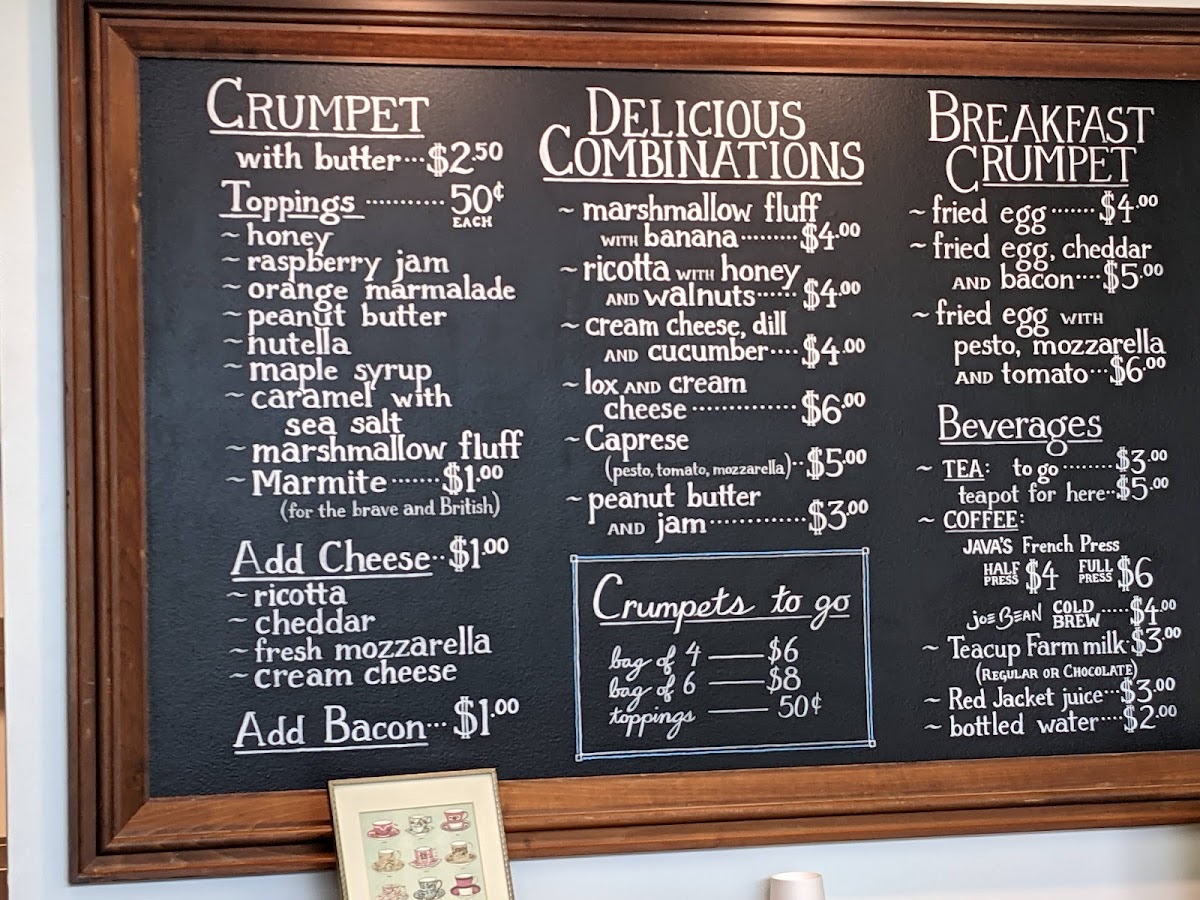 CRUMPET
with butter···$2.50
Toppings ············ 50¢
EACH
~ honey
~ raspberry jam
~ orange marmalade
~ peanut butter
~ nutella
~ maple syrup
~ caramel with
sea salt
~ marshmallow fluff
~ Marmite·······$1.00
(for the brave and British)
Add Cheese··$1.00
~ ricotta
~ cheddar
~ fresh mozzarella
~ cream cheese
Add Bacon···$1.00
DELICIOUS
COMBINATIONS
~ marshmallow fluff
WITH banana·········$4.00
~ ricotta WITH honey
AND walnuts······$4.00
~ cream cheese, dill
AND cucumber····$4.00
~ lox AND cream
cheese ··············$6.00
~ Caprese
(pesto, tomato, mozzarella)··$5.00
~ peanut butter
AND jam·············$3.00
Crumpets to go
bag of 4 — $6
bag of 6 — $8
toppings — 50¢
BREAKFAST
CRUMPET
~ fried egg·······$4.00
~ fried egg, cheddar
AND bacon····$5.00
~ fried egg WITH
pesto, mozzarella
AND tomato···$6.00
Beverages
~ TEA: to go·········$3.00
teapot for here··$5.00
~ COFFEE:
JAVA'S French Press
HALF PRESS $4 FULL PRESS $6
JOE BEAN COLD BREW·····$4.00
~ Teacup Farm milk·$3.00
(REGULAR OR CHOCOLATE)
~ Red Jacket juice···$3.00
~ bottled water····$2.00